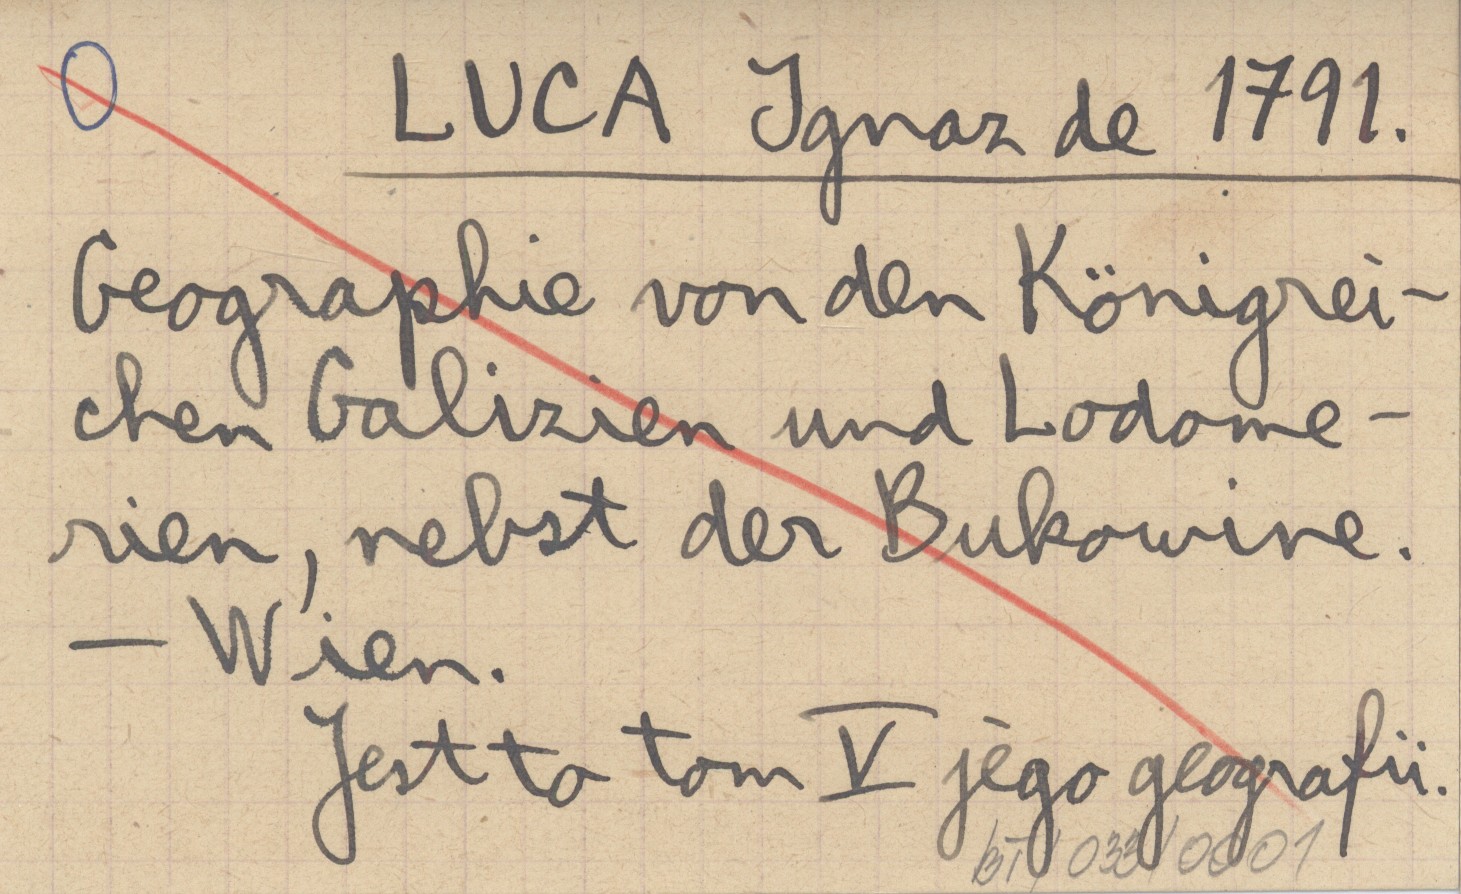 LUCA Ignaz de 1791.
Geographie von den Königrei-
chen Galizien und Lodome-
rien, nebst der Bukowine.
— Wien.
Jest to tom V jego geografii.
BT/033/0001